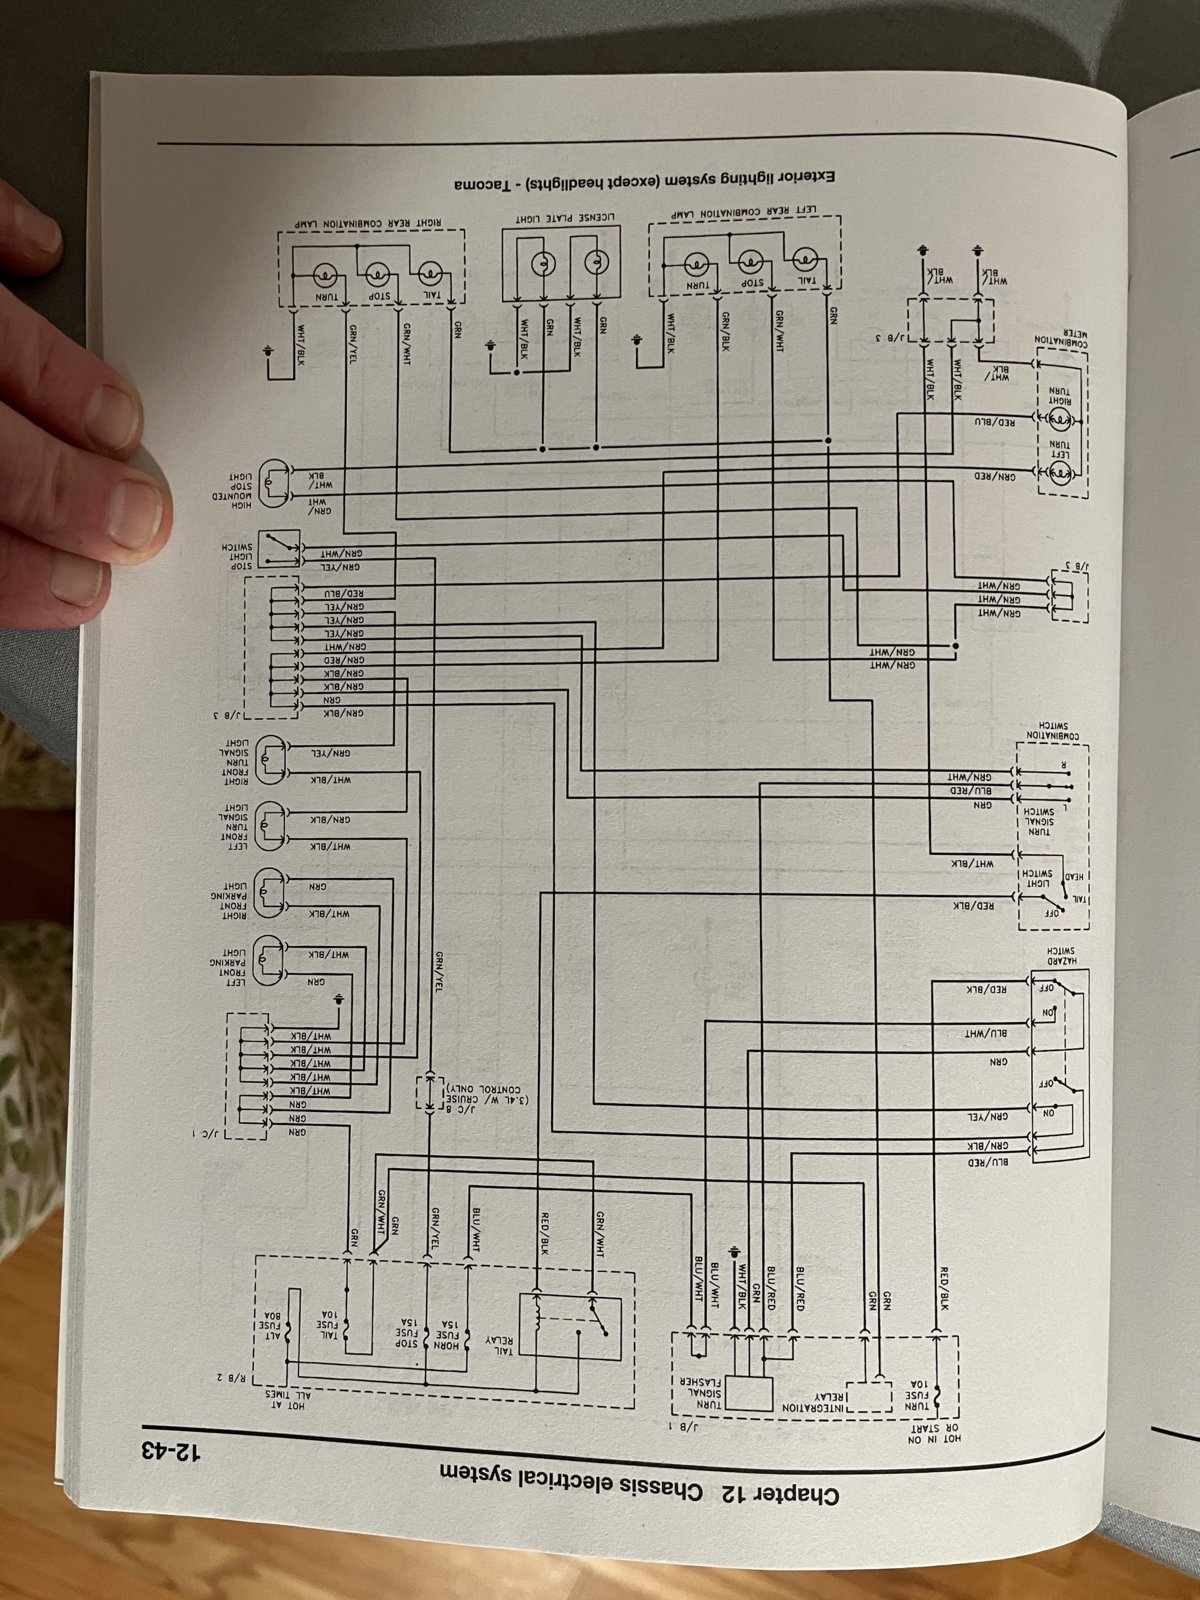 Chapter 12   Chassis electrical system
12-43
HOT IN ON
OR START
TURN
FUSE
10A
J/B 1
INTEGRATION
RELAY
TURN
SIGNAL
FLASHER
HOT AT
ALL TIMES
R/B 2
TAIL
RELAY
HORN
FUSE
15A
STOP
FUSE
15A
TAIL
FUSE
10A
ALT
FUSE
80A
RED/BLK
GRN
GRN
BLU/RED
BLU/RED
GRN
WHT/BLK
BLU/WHT
BLU/WHT
GRN/WHT
RED/BLK
BLU/WHT
GRN/YEL
GRN
GRN/WHT
GRN
BLU/RED
GRN/BLK
GRN/YEL
GRN
BLU/WHT
RED/BLK
ON
OFF
ON
OFF
HAZARD
SWITCH
J/C 8
(3.4L W/ CRUISE
CONTROL ONLY)
J/C 1
GRN
GRN
GRN
WHT/BLK
WHT/BLK
WHT/BLK
WHT/BLK
WHT/BLK
GRN
WHT/BLK
LEFT
FRONT
PARKING
LIGHT
GRN/YEL
WHT/BLK
GRN
RIGHT
FRONT
PARKING
LIGHT
RED/BLK
WHT/BLK
OFF
TAIL
HEAD
LIGHT
SWITCH
TURN
SIGNAL
SWITCH
L
R
GRN
BLU/RED
GRN/WHT
COMBINATION
SWITCH
WHT/BLK
GRN/BLK
LEFT
FRONT
TURN
SIGNAL
LIGHT
WHT/BLK
GRN/YEL
RIGHT
FRONT
TURN
SIGNAL
LIGHT
J/B 3
GRN/BLK
GRN
GRN/BLK
GRN/BLK
GRN/RED
GRN/WHT
GRN/YEL
GRN/YEL
GRN/YEL
RED/BLU
GRN/WHT
GRN/WHT
GRN/WHT
GRN/WHT
GRN/WHT
J/B 3
GRN/YEL
GRN/WHT
STOP
LIGHT
SWITCH
GRN/
WHT
WHT/
BLK
HIGH
MOUNTED
STOP
LIGHT
GRN/RED
RED/BLU
WHT/
BLK
LEFT
TURN
RIGHT
TURN
COMBINATION
METER
WHT/BLK
WHT/BLK
J/B 3
WHT/
BLK
WHT/
BLK
GRN
GRN/WHT
GRN/BLK
WHT/BLK
TAIL
STOP
TURN
LEFT REAR COMBINATION LAMP
GRN
WHT/BLK
GRN
WHT/BLK
LICENSE PLATE LIGHT
GRN
GRN/WHT
GRN/YEL
WHT/BLK
TAIL
STOP
TURN
RIGHT REAR COMBINATION LAMP
Exterior lighting system (except headlights) - Tacoma